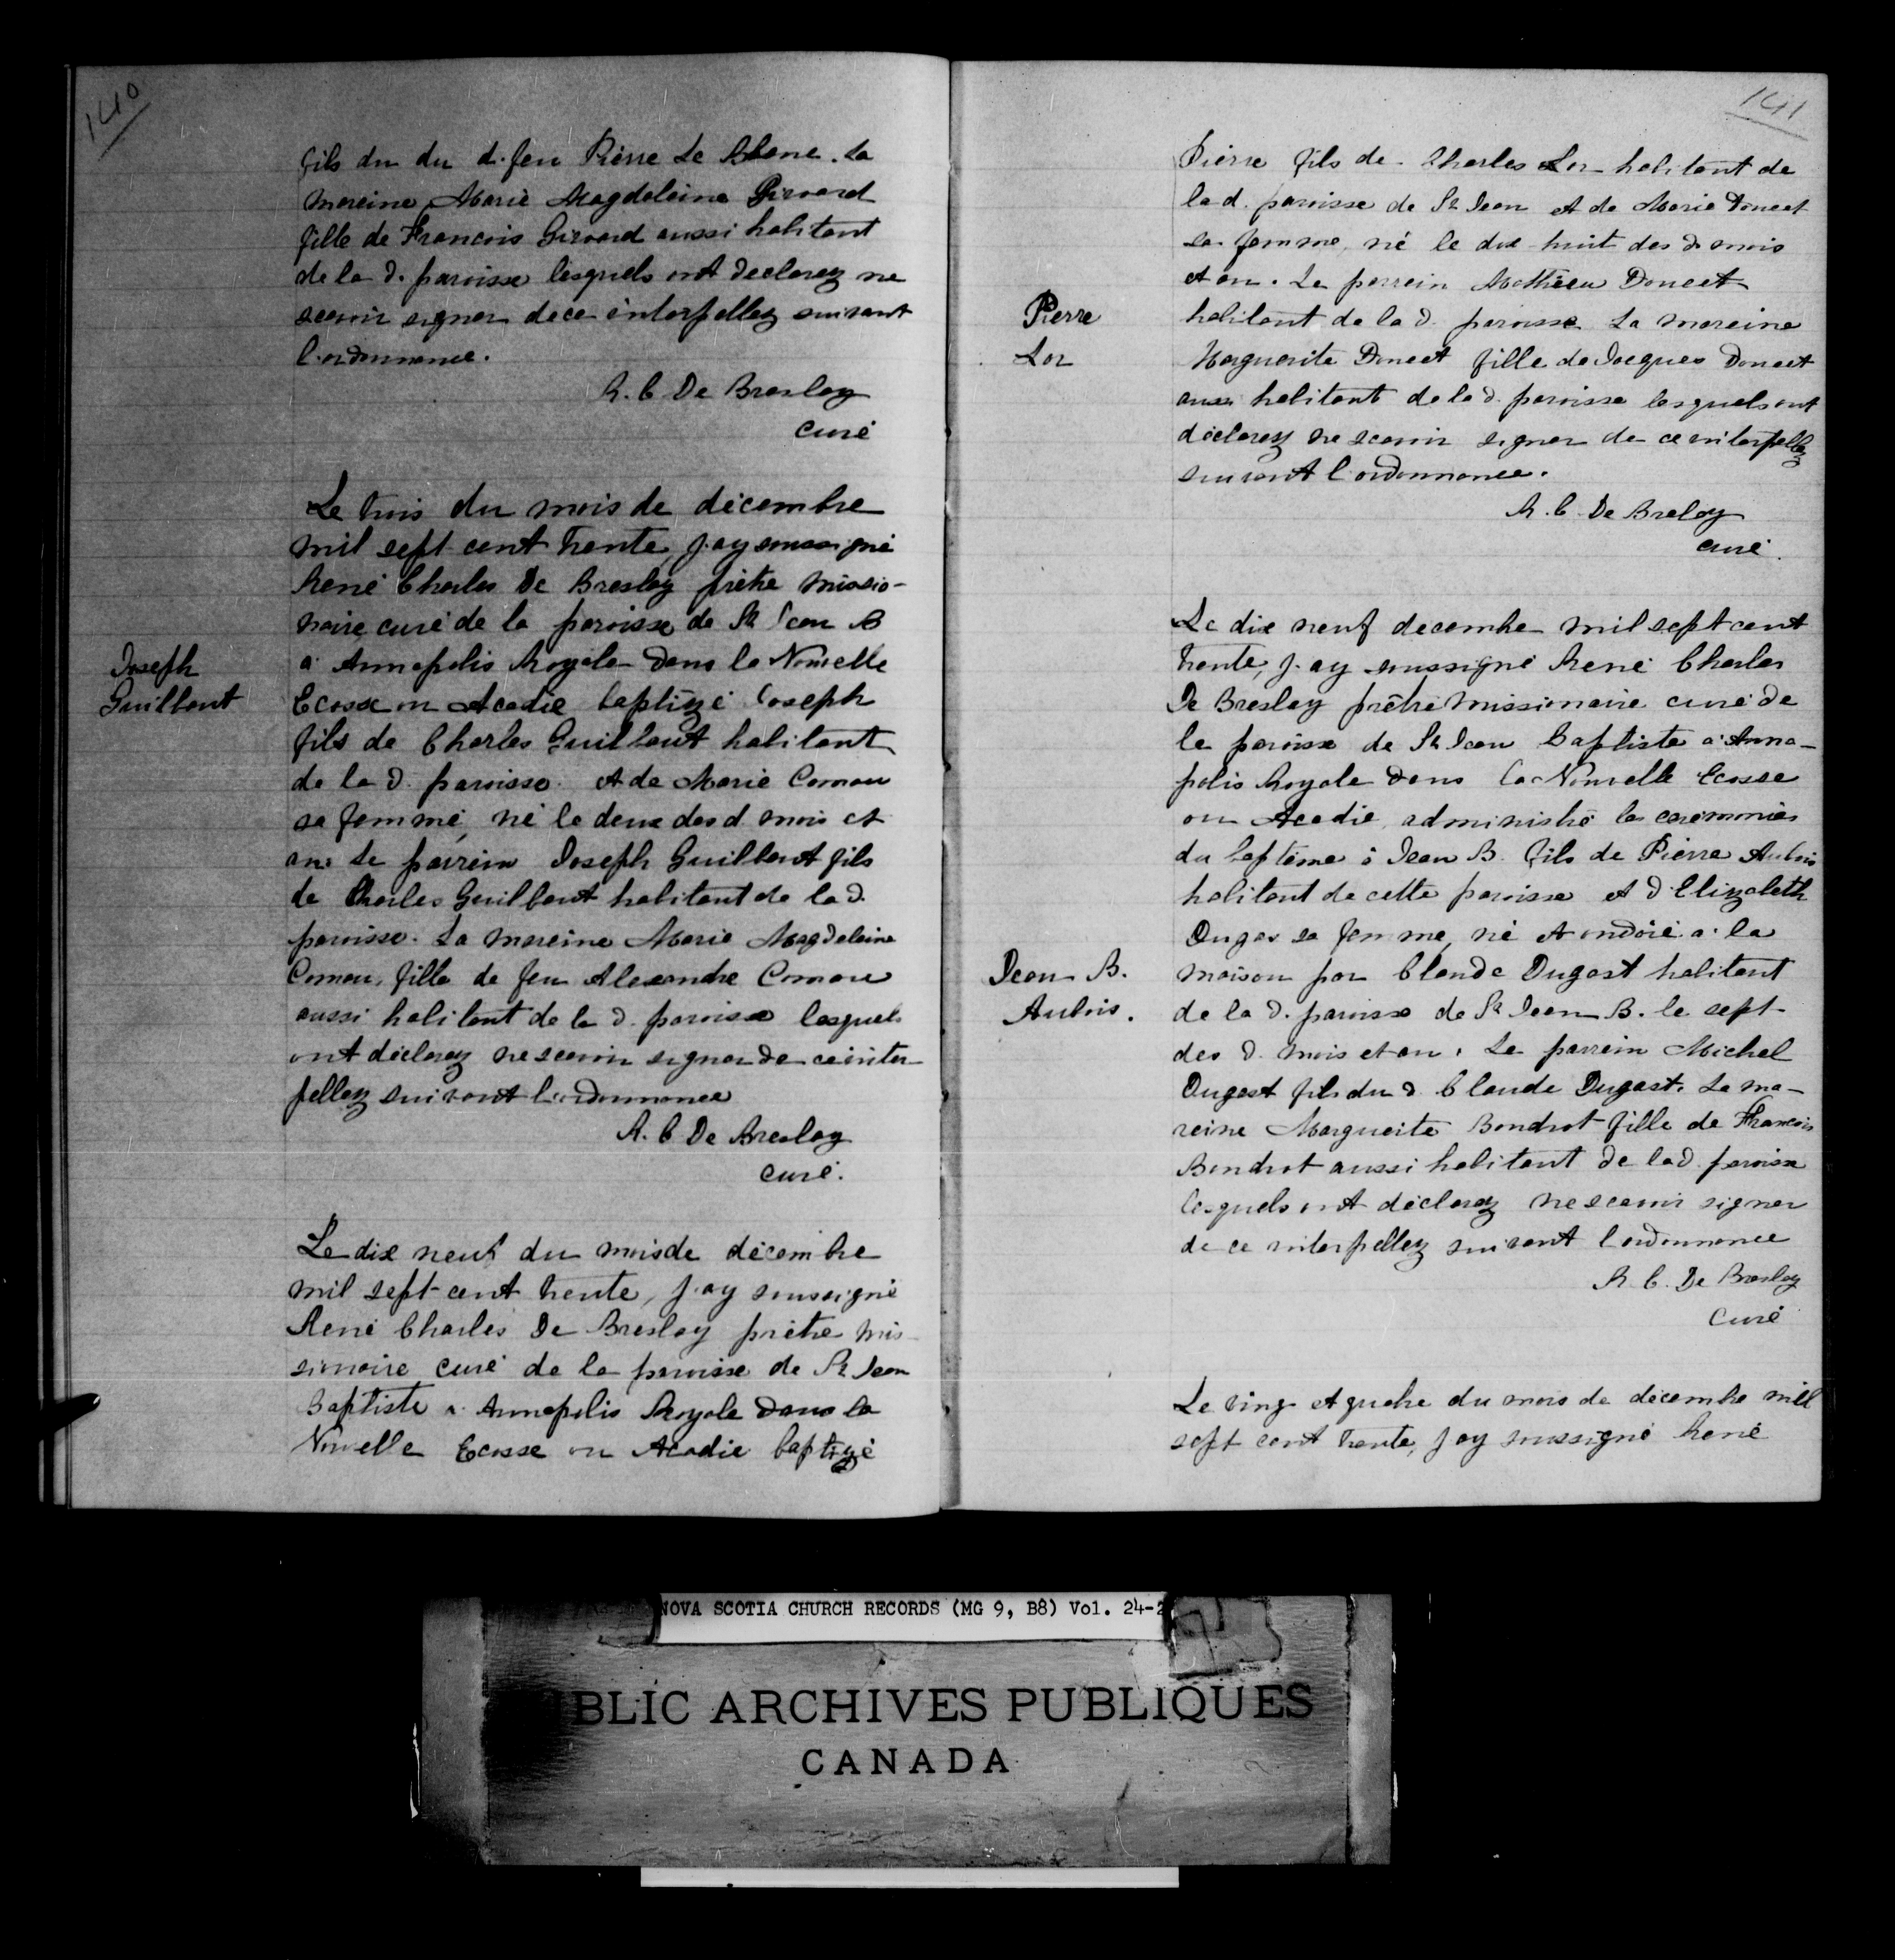 140
fils du du d. feu Pierre Le Blanc. La
mareine Marie Magdeleine Girouard
fille de Francois Girouard aussi habitant
de la d. paroisse lesquels ont declarez ne
scavoir signer de ce interpellez suivant
l'ordonnance.
R. C De Breslay
curé
Le trois du mois de décembre
mil sept cent trente, j'ay soussigné
René Charles De Breslay prêtre missio-
naire curé de la paroisse de St Jean B
a Annapolis Royale dans la Nouvelle
Joseph
Guilbaut
Ecosse ou Acadie baptizé Joseph
fils de Charles Guilbaut habitant
de la d. paroisse. et de Marie Comau
sa femme, né le deux des d. mois et
an. Le parrein Joseph Guilbaut fils
de Charles Guilbaut habitant de la d.
paroisse. La mareine Marie Magdeleine
Comau, fille de feu Alexandre Comau
aussi habitant de la d. paroisse lesquels
ont déclarez ne scavoir signer de ce inter-
pellez suivant l'ordonnance
R. C De Breslay
curé.
Le dix neuf du mois de décembre
mil sept cent trente, j'ay soussigné
René Charles De Breslay prêtre mis-
sionaire curé de la paroisse de St Jean
Baptiste a Annapolis Royale dans la
Nouvelle Ecosse ou Acadie baptizé
141
Pierre fils de Charles Lor habitant de
la d. paroisse de St Jean et de Marie Doucet
sa femme, né le dix huit des d. mois
et an. Le parrein Mathieu Doucet
Pierre
Lor
habitant de la d. paroisse La mareine
Marguerite Doucet fille de Jacques Doucet
aussi habitant de la d. paroisse lesquels ont
déclarez ne scavoir signer de ce interpellez
suivant l'ordonnance.
R. C. De Breloy
curé.
Le dix neuf decembre mil sept cent
trente, j'ay soussigné René Charles
De Breslay prêtre missionaire curé de
la paroisse de St Jean Baptiste a Anna-
polis Royale dans la Nouvelle Ecosse
ou Acadie, administré les ceremonies
du baptême à Jean B. fils de Pierre Aubois
habitant de cette paroisse et d'Elizabeth
Dugas sa femme, né et ondoié a la
Jean B.
Aubois.
maison par Claude Dugast habitant
de la d. paroisse de St Jean B. le sept
des d. mois et an. Le parrein Michel
Dugast fils du d Claude Dugast. La ma-
reine Marguerite Boudrot fille de Francois
Boudrot aussi habitant de la d. paroisse
lesquels ont déclarez ne scavoir signer
de ce interpellez suivant l'ordonnance
R. C. De Breslay
Curé
Le ving et quatre du mois de décembre mil
sept cent trente, j'ay soussigné René
NOVA SCOTIA CHURCH RECORDS (MG 9, B8) Vol. 24-2
BLIC ARCHIVES PUBLIQUES
CANADA